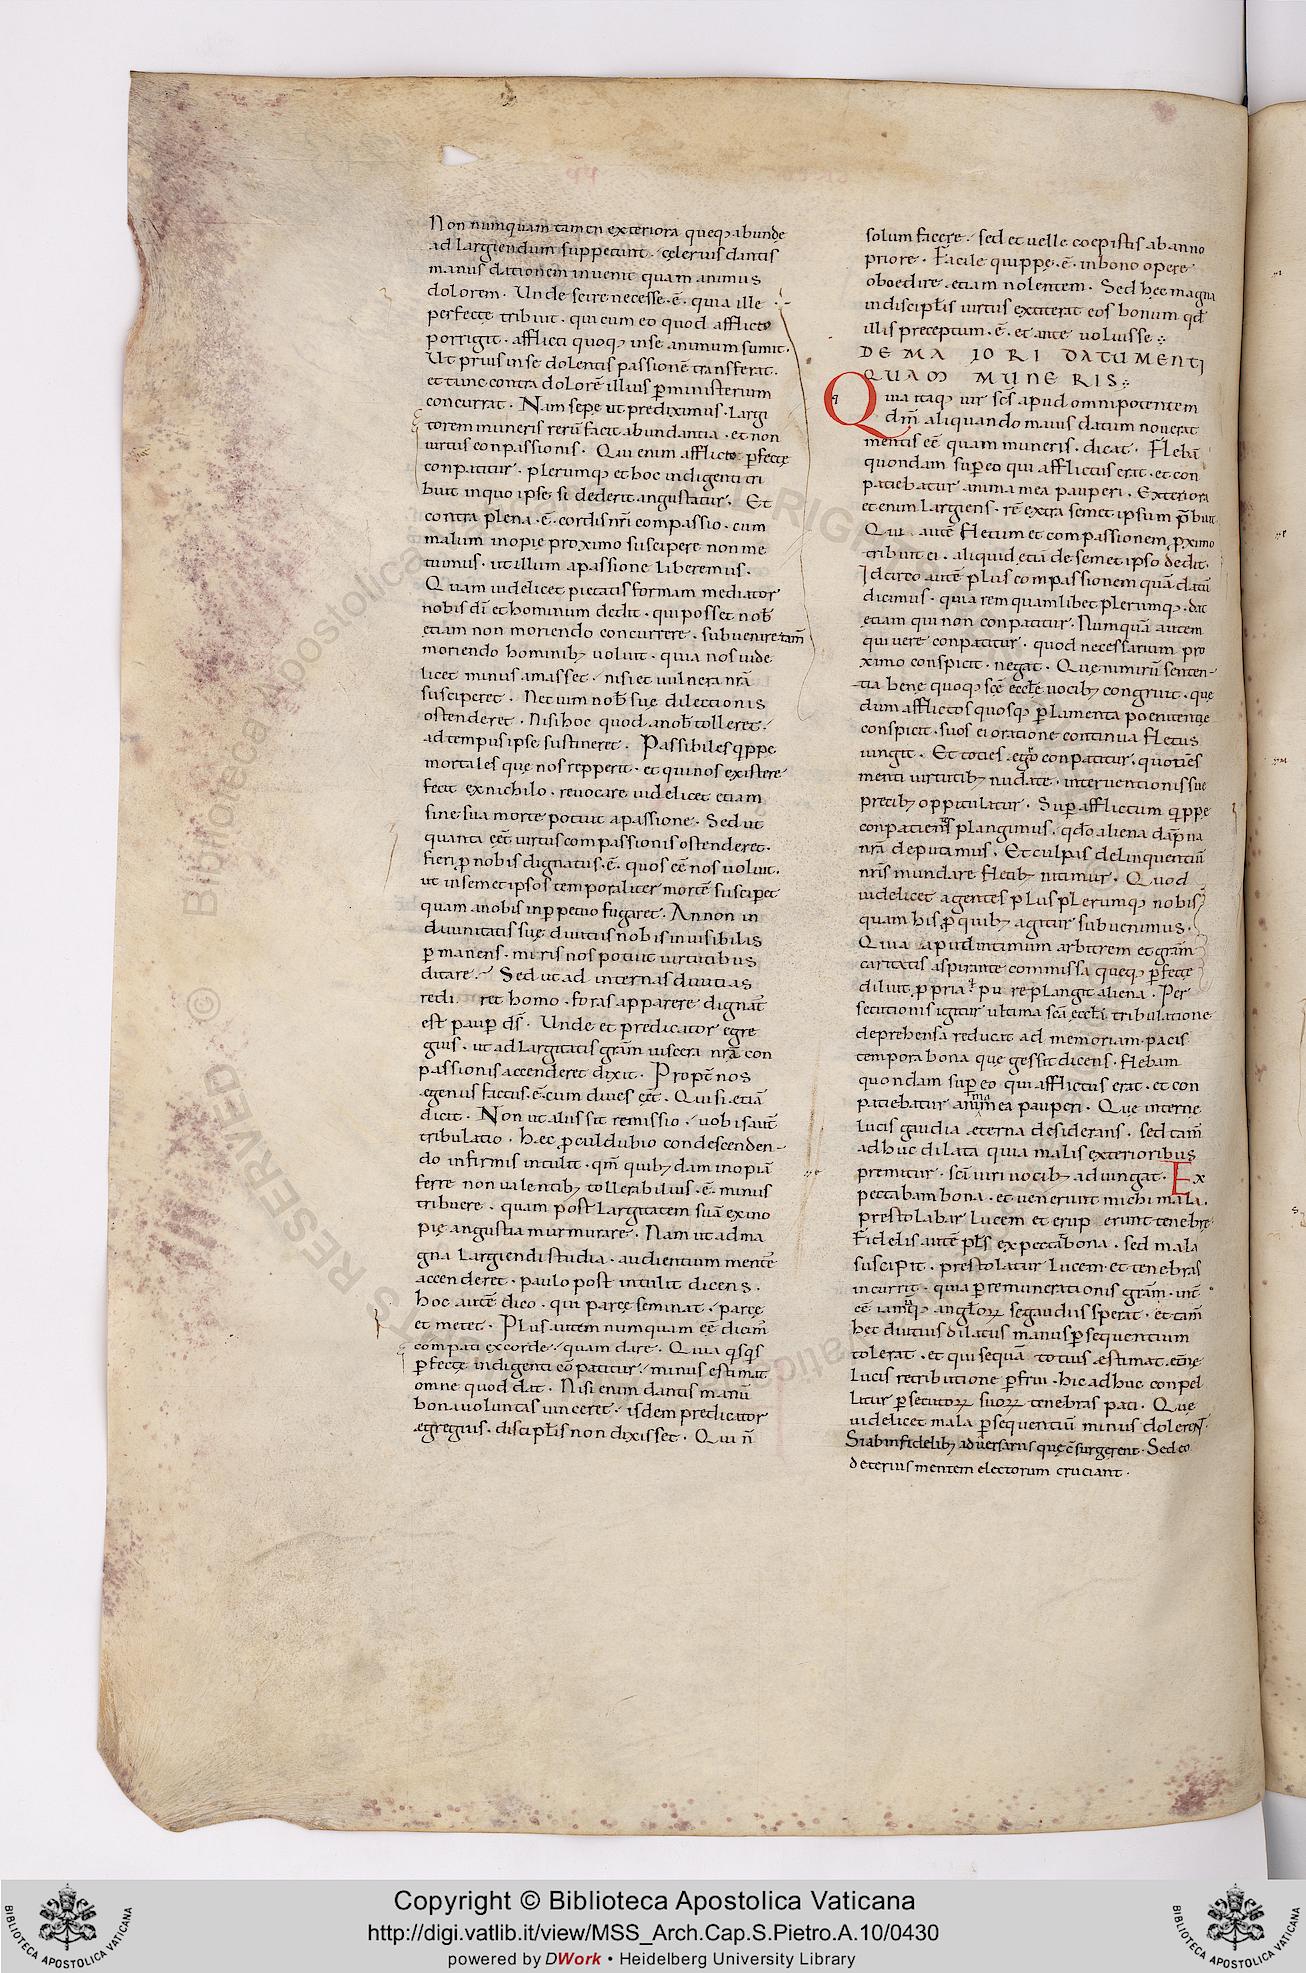 Non numquam tamen exteriora queq; abunde
ad largiendum suppetunt · celerius dantis
manus dationem invenit quam animus
dolorem · Unde scire necesse · ē · quia ille
perfectę tribuit · qui cum eo quod afflicto
porrigit · afflicti quoq; in se animum sumit ·
Ut prius in se dolentis passionē transferat ·
et tunc contra dolorē illius p ministerium
concurrat · Nam sepe ut prediximus · largi
torem muneris rerū facit abundantia · et non
uirtus conpassionis · Qui enim afflicto pfectę
conpatitur · plerumq; et hoc indigenti tri
buit in quo ipse si dederit angustatur · Et
contra plena · ē · cordis nr̄i compassio · cum
malum inopię proximo suscipere non me
tuimus · ut illum a passione liberemus ·
Quam uidelicet pietatis formam mediator
nobis dī et hominum dedit · qui posset nob̄
etiam non moriendo concurrere · subuenire tam̄
moriendo hominib; uoluit · quia nos uide
licet minus amasset · nisi et uulnera nr̄a
susciperet · Nec uim nob̄ suę dilectionis
ostenderet · Nisi hoc quod a nob̄ tolleret ·
ad tempus ipse sustineret · Passibiles q̄ppe
mortales que nos repperit · et qui nos existere
fecit ex nichilo · reuocare uidelicet etiam
sine sua morte potuit a passione · Sed ut
quanta ēēt uirtus compassionis ostenderet ·
fieri p nobis dignatus · ē · quos eē nos noluit ·
ut in semet ipsos temporaliter mortē susciperet
quam a nobis inppetuo fugaret · An non in
diuinitatis suę diuitiis nobis inuisibilis
pmanens · miris nos potuit uirtutibus
ditare · Sed ut ad internas diuitias
redi ret homo · foras apparere dignat̄
est paup ds̄ · Unde et predicator egre
gius · ut ad largitatis gr̄am uiscera nr̄a con
passionis accenderet dixit · Propt̄ nos
egenus factus · ē · cum diues ēēt · Qui si etiā
dicit · Non ut aliis sit remissio · uobis aut̄
tribulatio · hęc pculdubio condescenden-
do infirmis intulit · qm̄ quib;dam inopiā
ferre non ualentib; tollerabilius · ē · minus
tribuere · quam post largitatem suā ex ino
pię angustia murmurare · Nam ut ad ma
gna largiendi studia · audientium mentē
accenderet · paulo post intulit dicens ·
hoc autē dico · qui parcę seminat · parcę
et metet · Plus autem numquam eē dicim̄
compati ex corde · quam dare · Quia q̄sq̄s
pfectę indigenti cō patitur · minus estimat
omne quod dat · Nisi enim dantis manū
bona uoluntas uinceret · isdem predicator
egregius · discipl̄is non dixisset · Qui n̄
solum facere · sed et uelle coepistis ab anno
priore · Facile quippę · ē · in bono opere
oboedire · etiam nolentem · Sed hęc magna
in discipl̄is uirtus extiterat eos bonum qd̄
illis preceptum · ē · et ante uoluisse ·
DE MAIORI DATU MENTI
QUAM MUNERIS ·
Quia itaq; uir sc̄s apud omnipotentem
dm̄ aliquando maius datum nouerat
mentis eē quam muneris · dicat · Flebā
quondam sup eo qui afflictus erat · et con
patiebatur anima mea pauperi · Exteriora
et enim largiens · rē extra semet ipsum p̄buit
Qui · autē fletum et compassionem pximo
tribuit ei · aliquid etiā de semet ipso dedit ·
Idcirco autē plus compassionem quā datū
dicimus · quia rem quamlibet plerumq; · dat
etiam qui non conpatitur · Numquā autem
qui uere conpatitur · quod necessarium pro
ximo conspicit · negat · Quę nimirū senten-
tia bene quoq; scē eccl̄e uocib; congruit · quę
dum afflictos quosq; p lamenta poenitentię
conspicit · suos ei oratione continua fletus
iungit · Et toties ego conpatitur · quotiēs
menti uirtutib; nudate · interuentionis sue
precib; oppitulatur · Sup afflictum q̄ppe
conpatiens plangimus · qdo aliena dāpna
nr̄a deputamus · Et culpas delinquentiū
nr̄is mundare fletib; nitimur · Quod
uidelicet agentes plus plerumq; nobis
quam his p quib; agitur subuenimus ·
Quia apud intimum arbitrem et gr̄am
caritatis aspirante commissa queq; pfectę
diluit · ppria pu re plangit aliena · Per
secutionis igitur ultima scā eccl̄a tribulatione
deprehensa reducit ad memoriam · pacis
tempora bona que gessit dicens · flebam
quondam sup eo qui afflictus erat · et con
patiebatur anima mea pauperi · Quę internę
lucis gaudia ęterna desiderans · sed tam̄
adhuc dilata quia malis exterioribus
premitur · scī uiri uocib; adiungat · Ex
pectabam bona · et uenerunt michi mala ·
prestolabar lucem et erup erunt tenebrę ·
Fidelis autē pl̄s expectat bona · sed mala
suscipit · prestolatur lucem · et tenebras
incurrit · quia p remunerationis gr̄am · int̄
eē iamq; angl̄oꝝ se gaudiis sperat · et tam̄
hec diutius dilatus manus psequentium
tolerat · et qui se quā totius estimat ętnę
lucis retributione pfrui · hic adhuc conpel
litur psecutoꝝ suoꝝ tenebras pati · Quę
uidelicet mala psequentiū minus dolerent ·
Si ab infidelib; aduersariis quę ē surgerent · Sed eo
deterius mentem electorum cruciant ·
Copyright © Biblioteca Apostolica Vaticana
http://digi.vatlib.it/view/MSS_Arch.Cap.S.Pietro.A.10/0430
powered by DWork • Heidelberg University Library
BIBLIOTECA APOSTOLICA VATICANA
BIBLIOTECA APOSTOLICA VATICANA